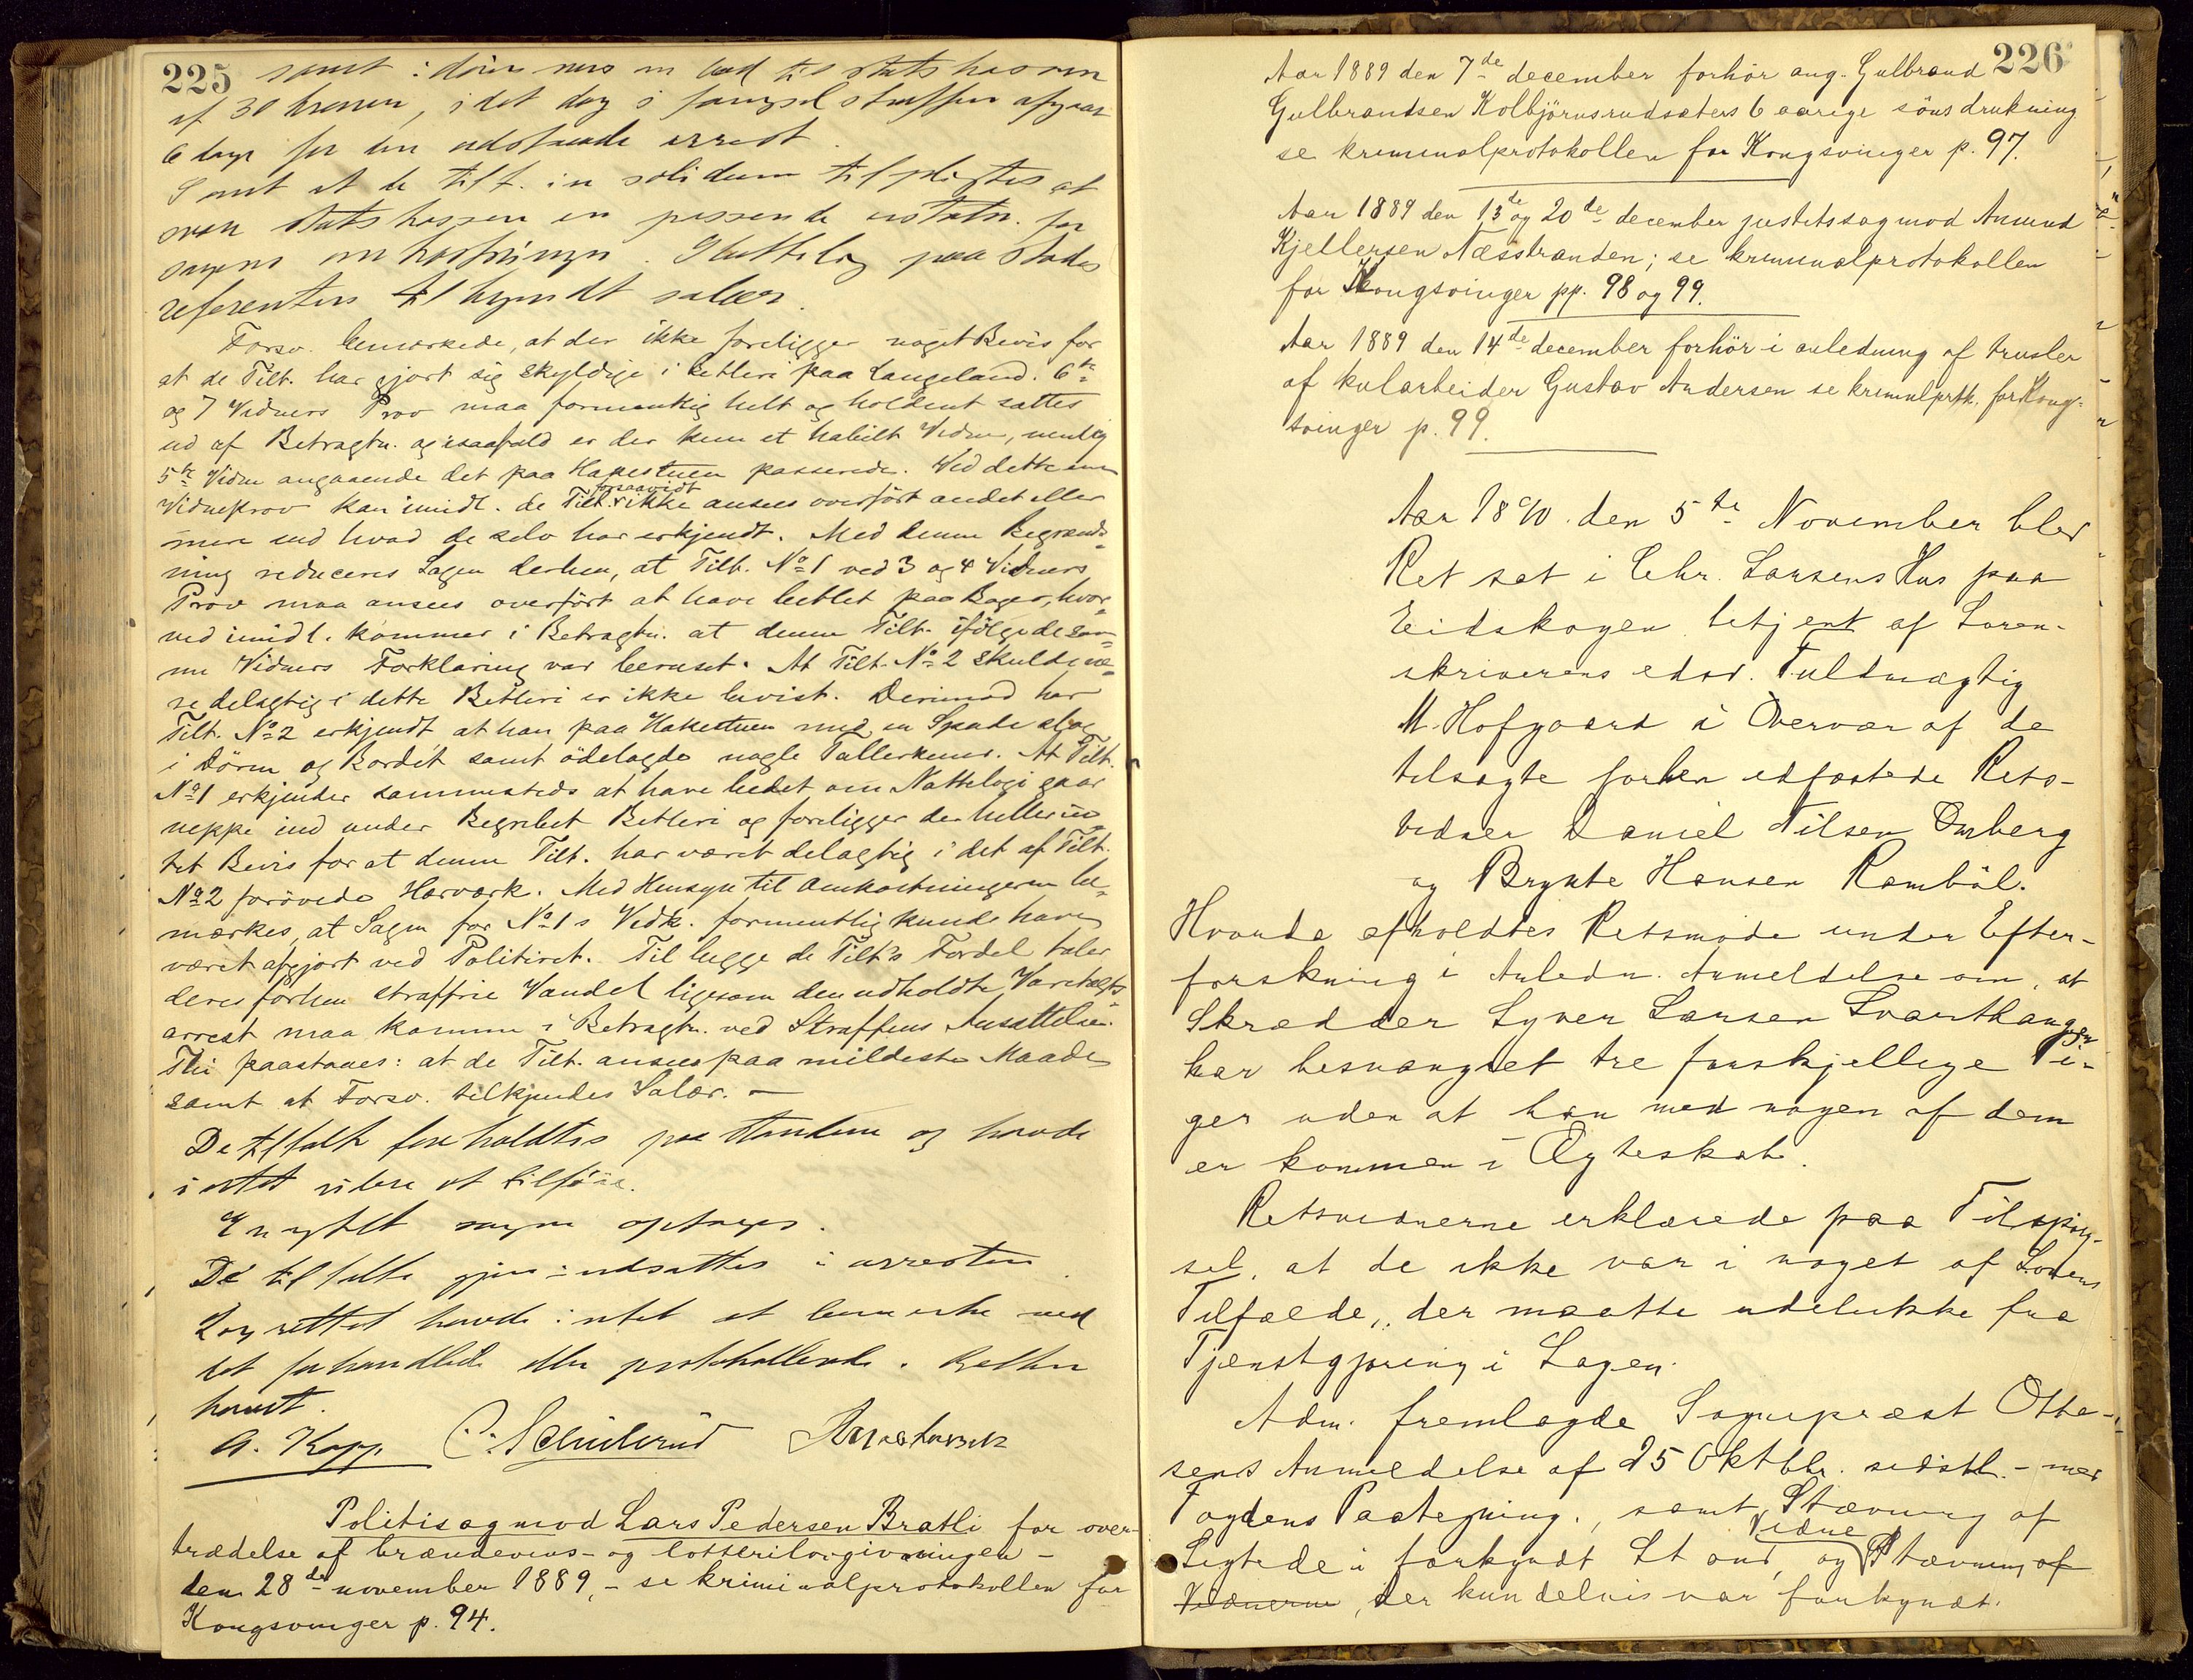 225
samt : döm mes en bod til statskassen
af 30 kroner, i det dog i fængselstraffen afgaar
6 dage for den udstaaede arrest.
Samt at de tilt. in solidum tilpligtes at
svare statskassen en passende erstatn. for
sagens omkostninger. Sluttelig paastodes
referenten tilkjendt salær.
Forsv. bemærkede, at der ikke foreligger noget Bevis for
at de Tilt. har gjort sig skyldige i Betleri paa Langeland. 6te
og 7 Vidners Prov maa formentlig helt og holdent sættes
ud af Betragtn. og isaafald er der kun et habilt Vidne, nemlig
5te Vidne angaaende det paa Hakestuen passerede. Ved dette ene
Vidneprov kan imidl. de Tilt. forsaavidt ikke ansees overført andet eller
mere end hvad de selv har erkjendt. Med denne Begrænds-
ning reduceres Sagen derhen, at Tilt. No 1 ved 3 og 4 Vidners
Prov maa ansees overført at have betlet paa Bager, hvor-
ved imidl. kommer i Betragtn. at denne Tilt. ifölge de sam-
me Vidners Forklaring var beruset. At Tilt. No 2 skulde væ-
re delagtig i dette Betleri er ikke bevist. Derimod har
Tilt. No 2 erkjendt at han paa Hakestuen med en Spade slog
i Dören og Bordet samt ödelagde nogle Tallerkener. At Tilt.
No 1 erkjender sammesteds at have bedet om Natteloge gaar
neppe ind under Begrebet Betleri og foreligger der heller in-
tet Bevis for at denne Tilt. har været delagtig i det af Tilt.
No 2 forövede Hærværk. Med Hensyn til Omkostningerne be-
mærkes, at Sagen for No 1s Vedk. formentlig kunde have
været afgjort ved Politiret. Til begge de Tilt's Fordel taler
deres forhen straffrie Vandel ligesom den udholdte Varetægts
arrest maa komme i Betragtn. ved Straffens Ansættelse.
Thi paastaaes: at de Tilt. ansees paa mildeste Maade
samt at Forsv. tilkjendes Salær. —
De tiltalte foreholdtes paastandene og havde
intet videre at tilföie.
Eragtet sagen optages.
De tiltalte gjen-indsættes i arresten.
Lagrettet havde intet at bemærke ved
det forhandlede eller protokollerede. Retten
hævet.
A. Kapp C. Schulerud
Politisag mod Lars Pedersen Bratli for over-
trædelse af brændevins- og lotterilovgivningen -
den 28de november 1889, - se kriminalprotokollen for
Kongsvinger p. 94.
226
Aar 1889 den 7de december forhör ang. Gulbrand
Gulbrandsen Kolbjörnsrudsæters 6 aarige söns drukning
se kriminalprotokollen for Kongsvinger p. 97.
Aar 1889 den 13de og 20de december justitssag mod Amund
Kjellersen Næsstranden; se kriminalprotokollen
for Kongsvinger pp. 98 og 99.
Aar 1889 den 14de december forhör i anledning af trusler
af kularbeider Gustav Andersen se krimnlprtk. for Kong-
svinger p. 99.
Aar 1890 den 5te November blev
Ret sat i Chr. Larsens Hus paa
Eidskogen betjent af Soren-
skriverens edsv. Fuldmægtig
M. Hofgaard i Overvær af de
tilsagte forhen edfæstede Rets-
vidner Daniel Nilsen Omberg
og Brynte Hansen Ramböl.
Hvorda afholdtes Retsmöde under Efter-
forskning i Anledn. Anmeldelse om, at
Skrædder Syver Larsen Svarthaugen
har besvangret tre forskjellige Pi-
ger uden at han med nogen af dem
er kommen i Ægteskab.
Retsvidnerne erklærede paa Tilspörg-
sel, at de ikke var i noget af Lovens
Tilfælde, der maatte udelukke fra
Tjenstgjøring i Sagen.
Adm. fremlagde Sogneprest Otte-
sens Anmeldelse af 25 Oktbr. sidstl. - med
Fogdens Paategning, samt Stævning af
Sigtede i forkyndt Stand, og Vidne Stævning af
Vidnerne, der kun delvis var forkyndt.